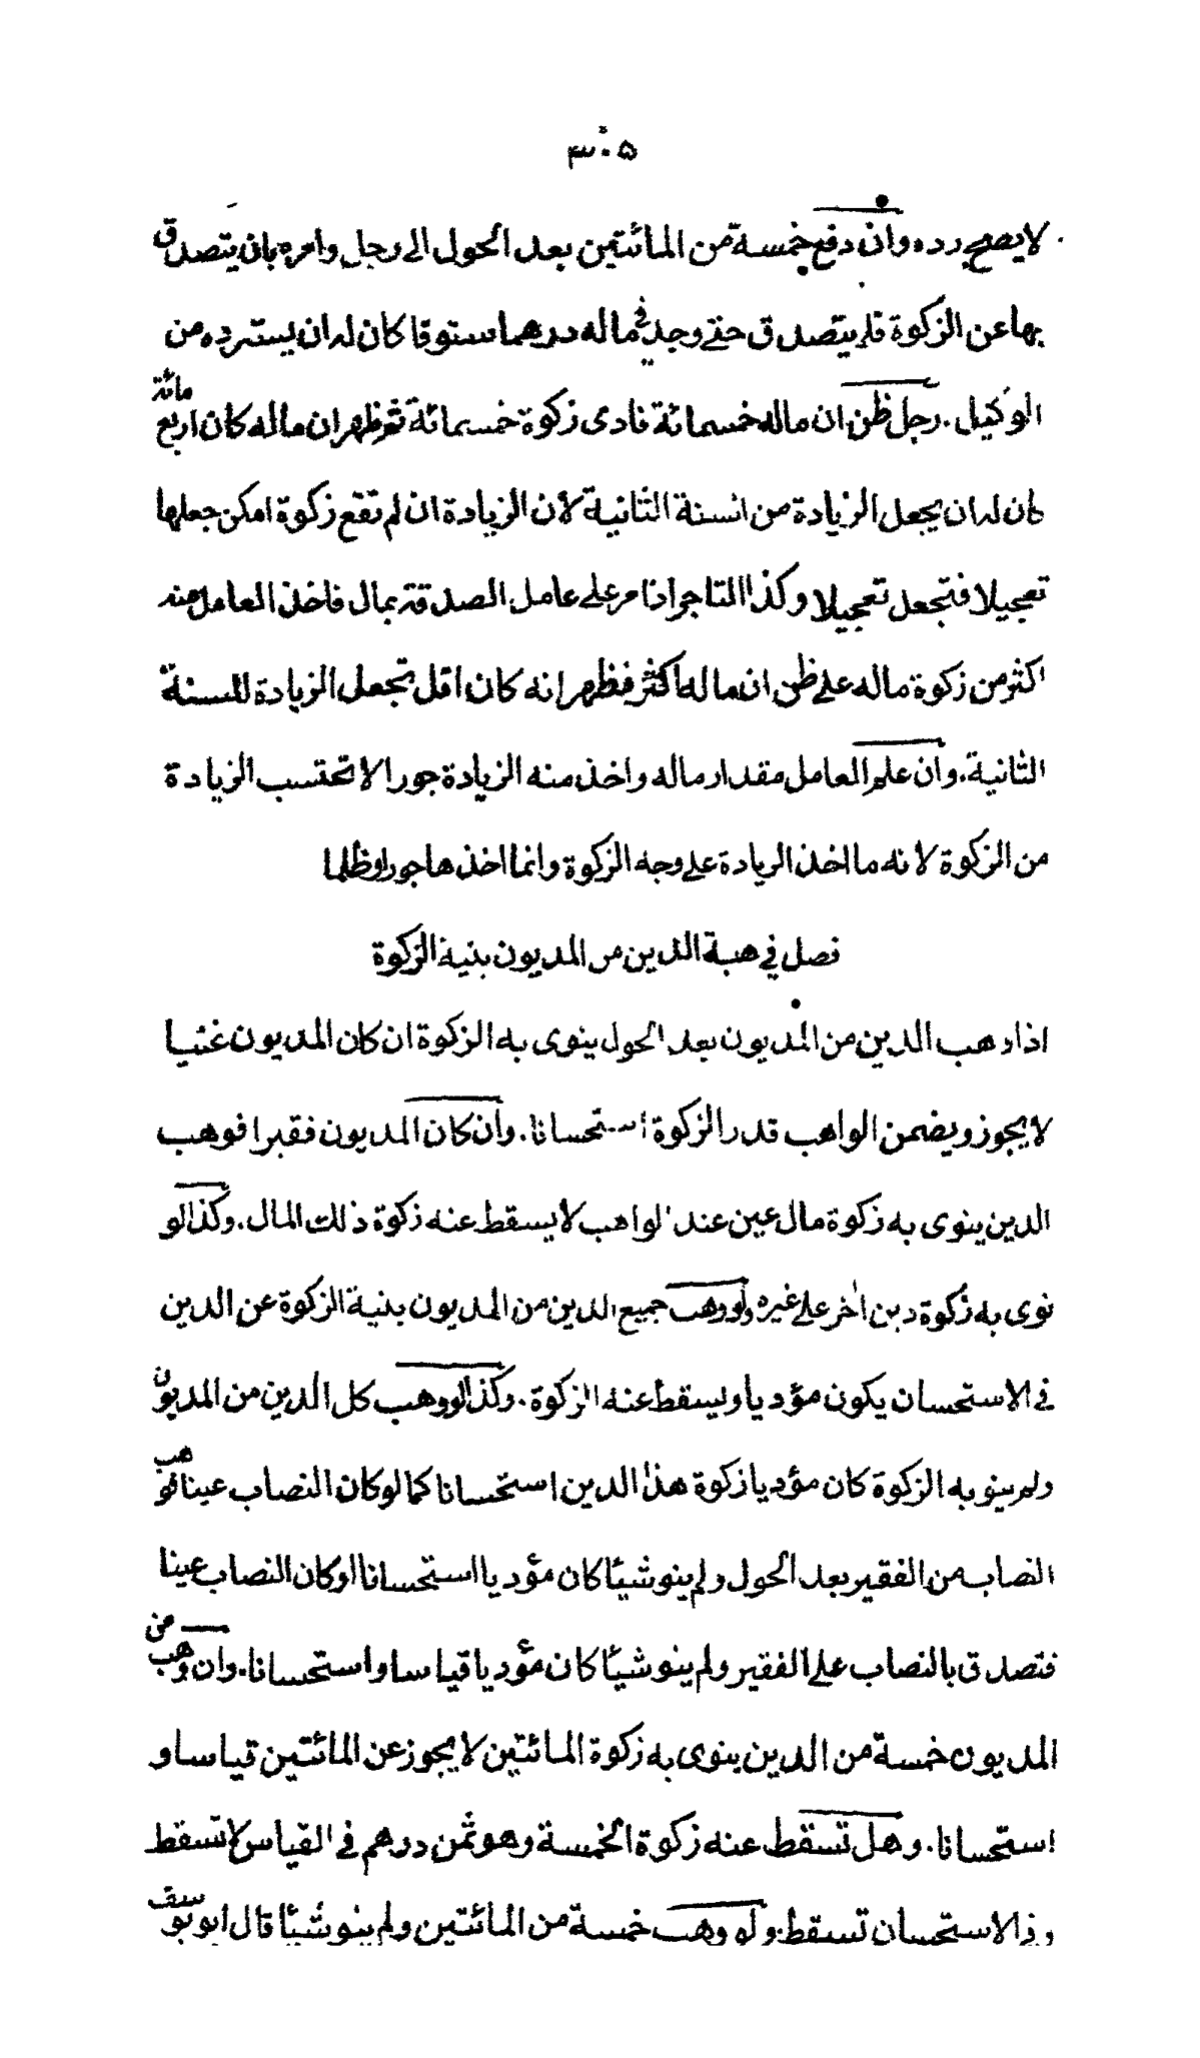 ۳۰۵
لا يصح رده وان دفع خمسة من المائتين بعد الحول الى رجل وامره بان يتصدق
بها عن الزكوة فلم يتصدق حتى وجد في ماله درهما ستوقا كان له ان يسترده من
الوكيل . رجل ظن ان ماله خمسمائة فادى زكوة خمسمائة ثم ظهر ان ماله كان اربع مائة
كان له ان يجعل الزيادة من السنة الثانية لأن الزيادة ان لم تقع زكوة امكن جعلها
تعجيلا فتجعل تعجيلا وكذا التاجر اذا مر على عامل الصدقة بمال فاخذ العامل منه
اكثر من زكوة ماله على ظن ان ماله اكثر فظهر انه كان اقل تجعل الزيادة للسنة
الثانية . وان علم العامل مقدار ماله واخذ منه الزيادة جورا لا تحتسب الزيادة
من الزكوة لانه ما اخذ الزيادة على وجه الزكوة وانما اخذها جورا وظلما
فصل في هبة الدين من المديون بنية الزكوة
اذا وهب الدين من المديون بعد الحول ينوى به الزكوة ان كان المديون غنيا
لا يجوز ويضمن الواهب قدر الزكوة استحسانا . وان كان المديون فقيرا فوهب
الدين ينوى به زكوة مال عين عند الواهب لا يسقط عنه زكوة ذلك المال . وكذا لو
نوى به زكوة دين اٰخر على غيره ولو وهب جميع الدين من المديون بنية الزكوة عن الدين
في الاستحسان يكون مؤديا ويسقط عنه الزكوة . وكذا لو وهب كل الدين من المديون
ولم ينو به الزكوة كان مؤديا زكوة هذا الدين استحسانا كما لو كان النصاب عينا فوهب
النصاب من الفقير بعد الحول ولم ينو شيئا كان مؤديا استحسانا او كان النصاب عينا
فتصدق بالنصاب على الفقير ولم ينو شيئا كان مؤديا قياسا واستحسانا . وان وهب من
المديون خمسة من الدين ينوى به زكوة المائتين لا يجوز عن المائتين قياسا و
استحسانا . وهل تسقط عنه زكوة الخمسة وهو ثمن درهم في القياس لا تسقط
وفي الاستحسان تسقط . ولو وهب خمسة من المائتين ولم ينو شيئا قال ابو يوسف